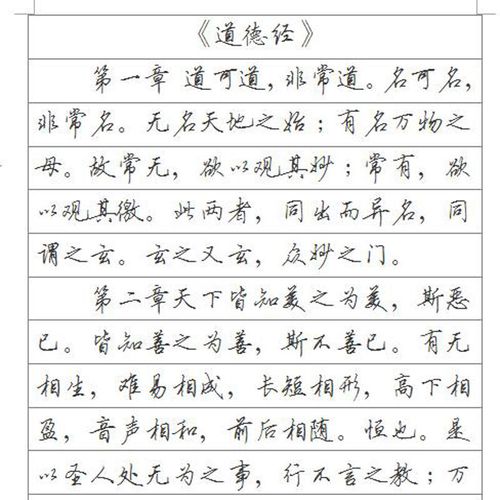 《道德经》
第一章 道可道，非常道。名可名，
非常名。无名天地之始；有名万物之
母。故常无，欲以观其妙；常有，欲
以观其徼。此两者，同出而异名，同
谓之玄。玄之又玄，众妙之门。
第二章天下皆知美之为美，斯恶
已。皆知善之为善，斯不善已。有无
相生，难易相成，长短相形，高下相
盈，音声相和，前后相随。恒也。是
以圣人处无为之事，行不言之教；万